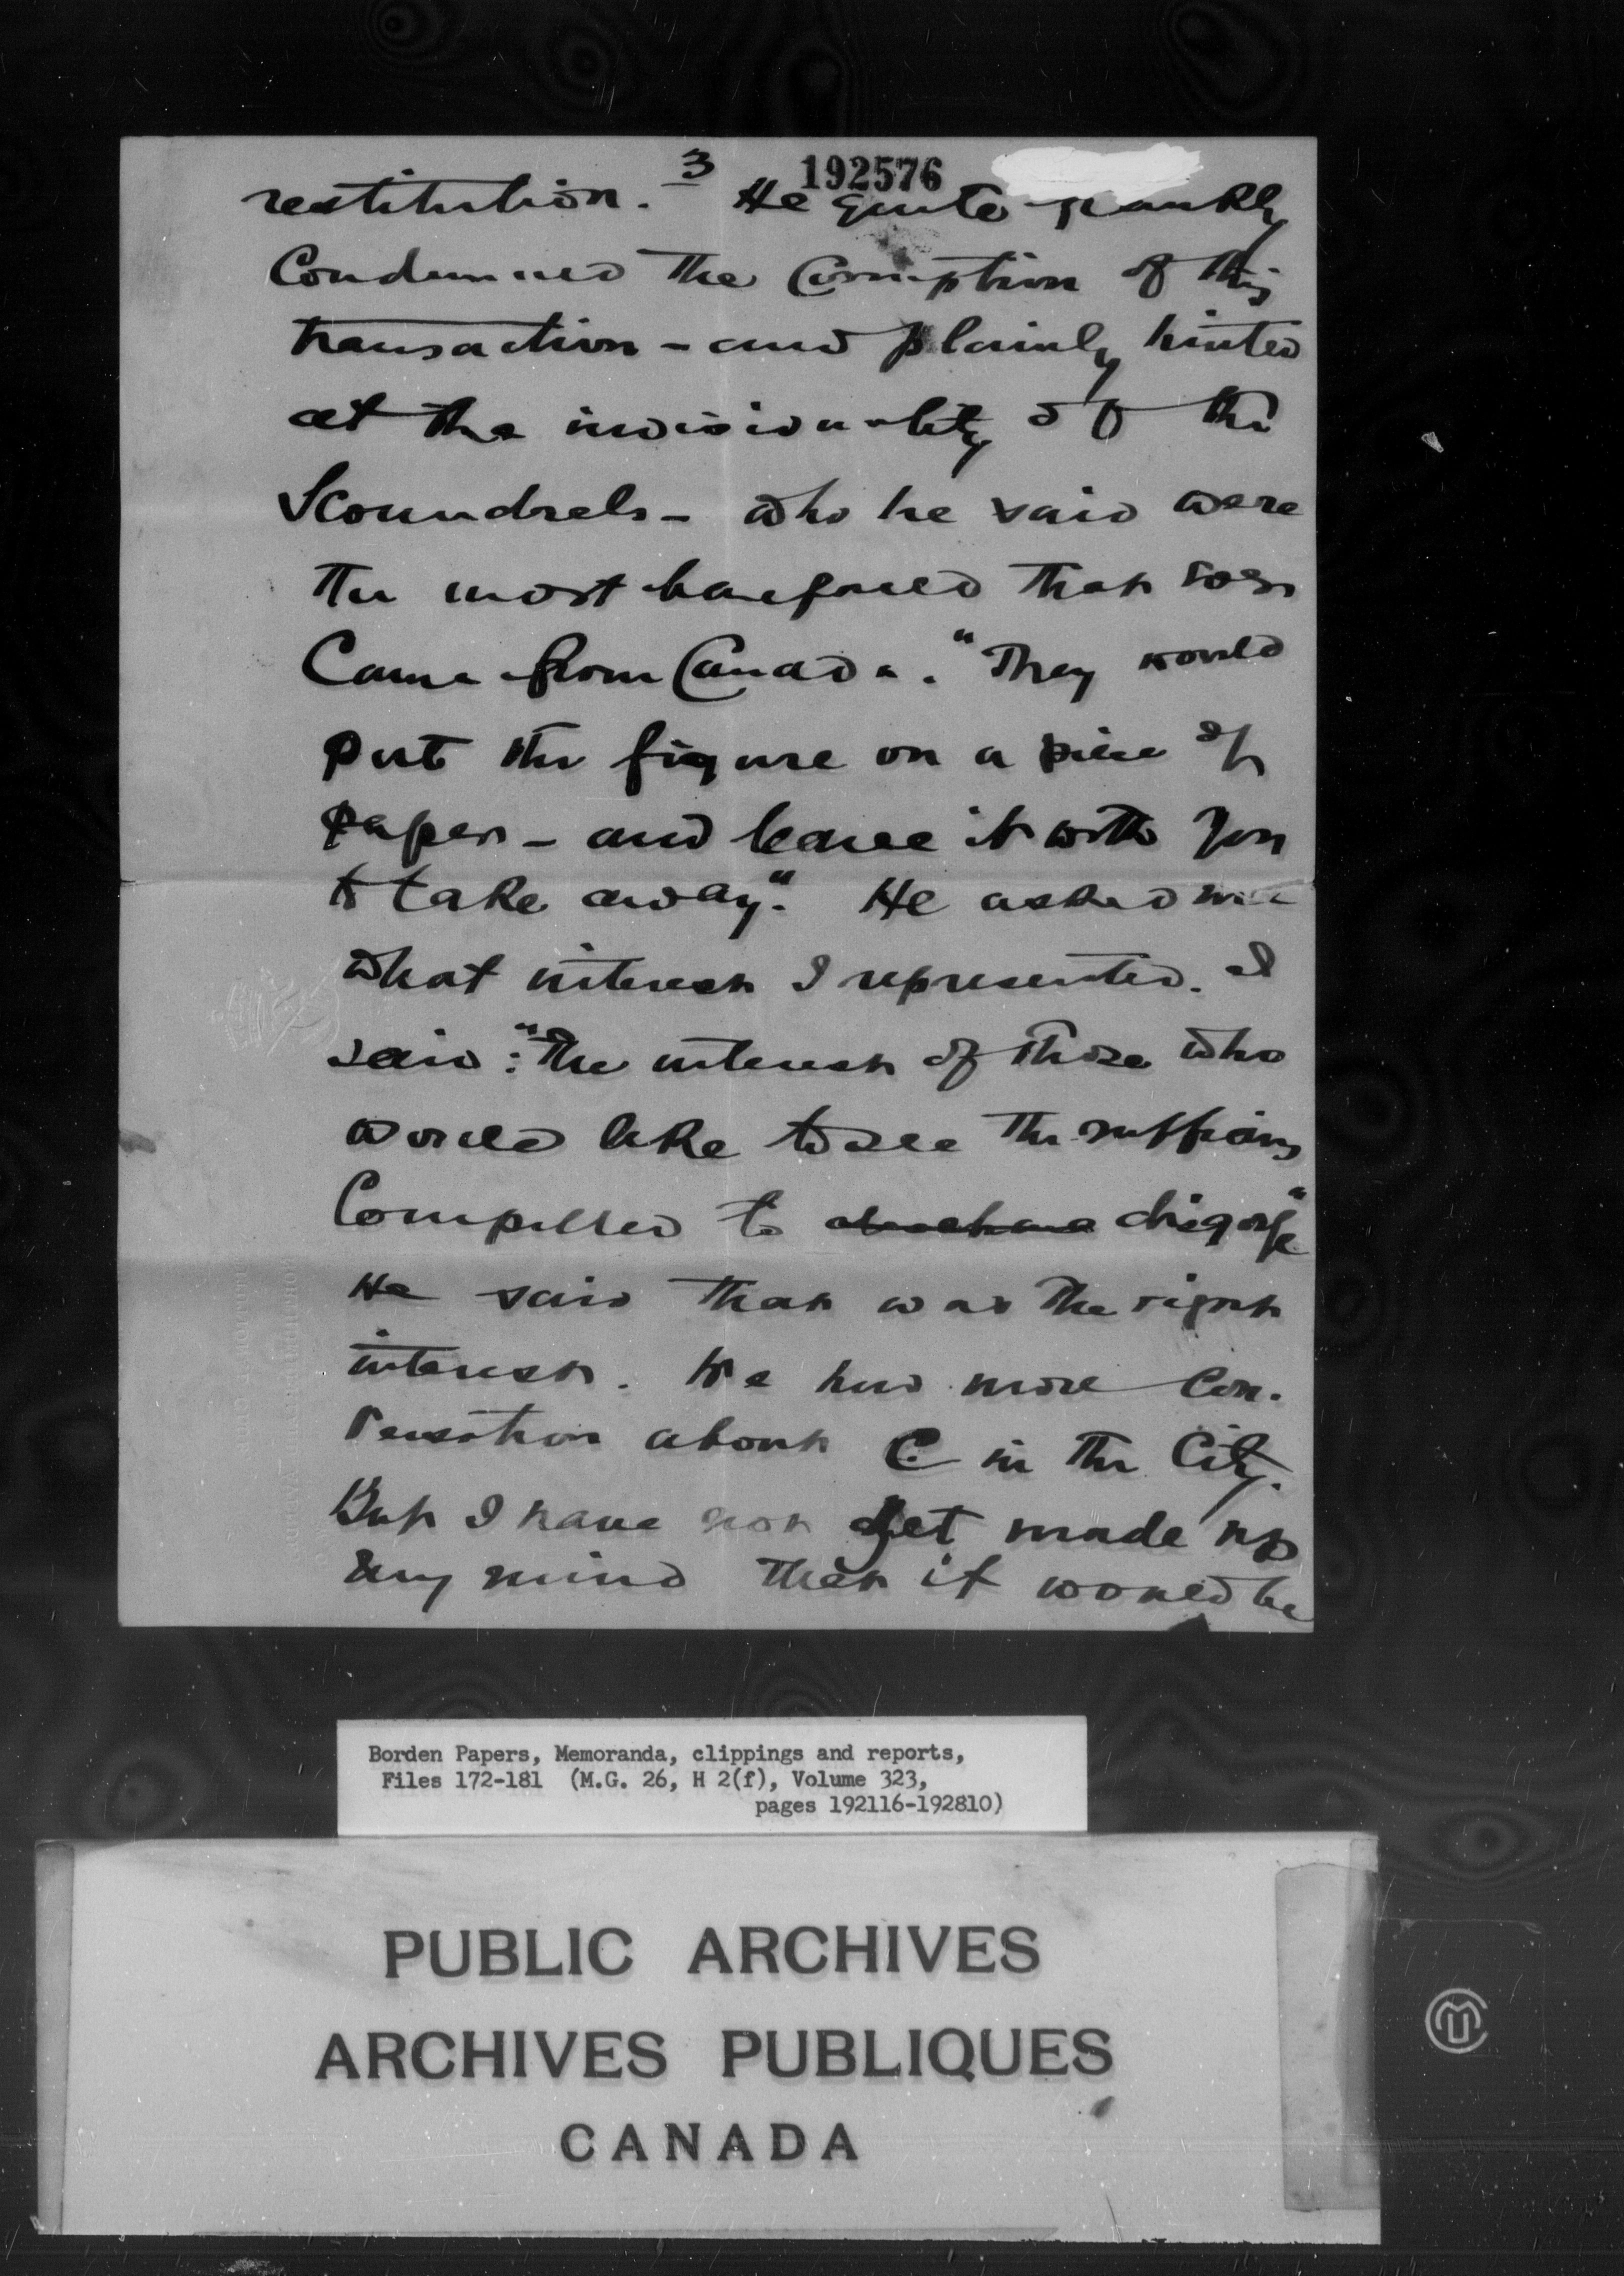 3
192576
restitution. He quite frankly
Condemned the Corruption of this
transaction - and plainly hinted
at the individuality of the
Scoundrels - who he said were
the most barefaced that ever
Came from Canada. "They would
put the figure on a piece of
paper - and leave it with you
to take away." He asked me
what interest I represented. I
said: "The interest of those who
would like to see the ruffians
Compelled to disgorge"
He said that was the right
interest. We had more Con-
versation about C. in the City.
But I have not yet made up
my mind that it would be
Borden Papers, Memoranda, clippings and reports,
Files 172-181 (M.G. 26, H 2(f), Volume 323,
pages 192116-192810)
PUBLIC ARCHIVES
ARCHIVES PUBLIQUES
CANADA